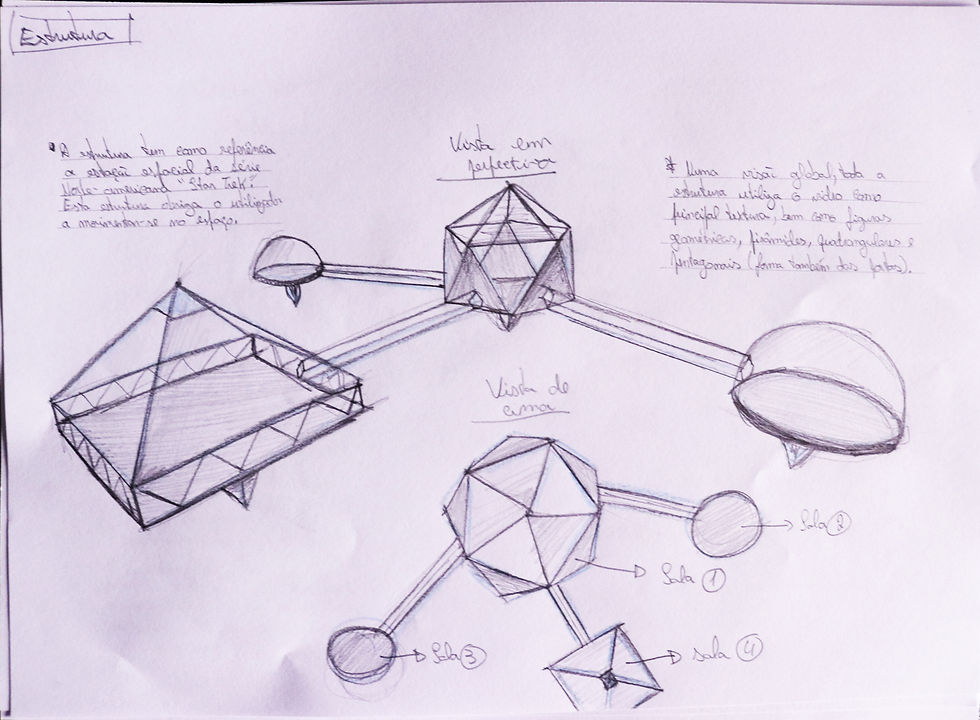 Estrutura
• A estrutura tem como referência
a estação espacial da série
Norte-americana "Star Trek".
Esta estrutura obriga o utilizador
a movimentar-se no espaço.
Vista em
perfectiva
* Numa visão global, toda a
estrutura utiliza o vidro como
principal textura, bem como figuras
geométricas, pirâmides, quadrangulares e
pentagonais (forma também das portas).
Vista de
cima
Sala 2
Sala 1
Sala 3
Sala 4